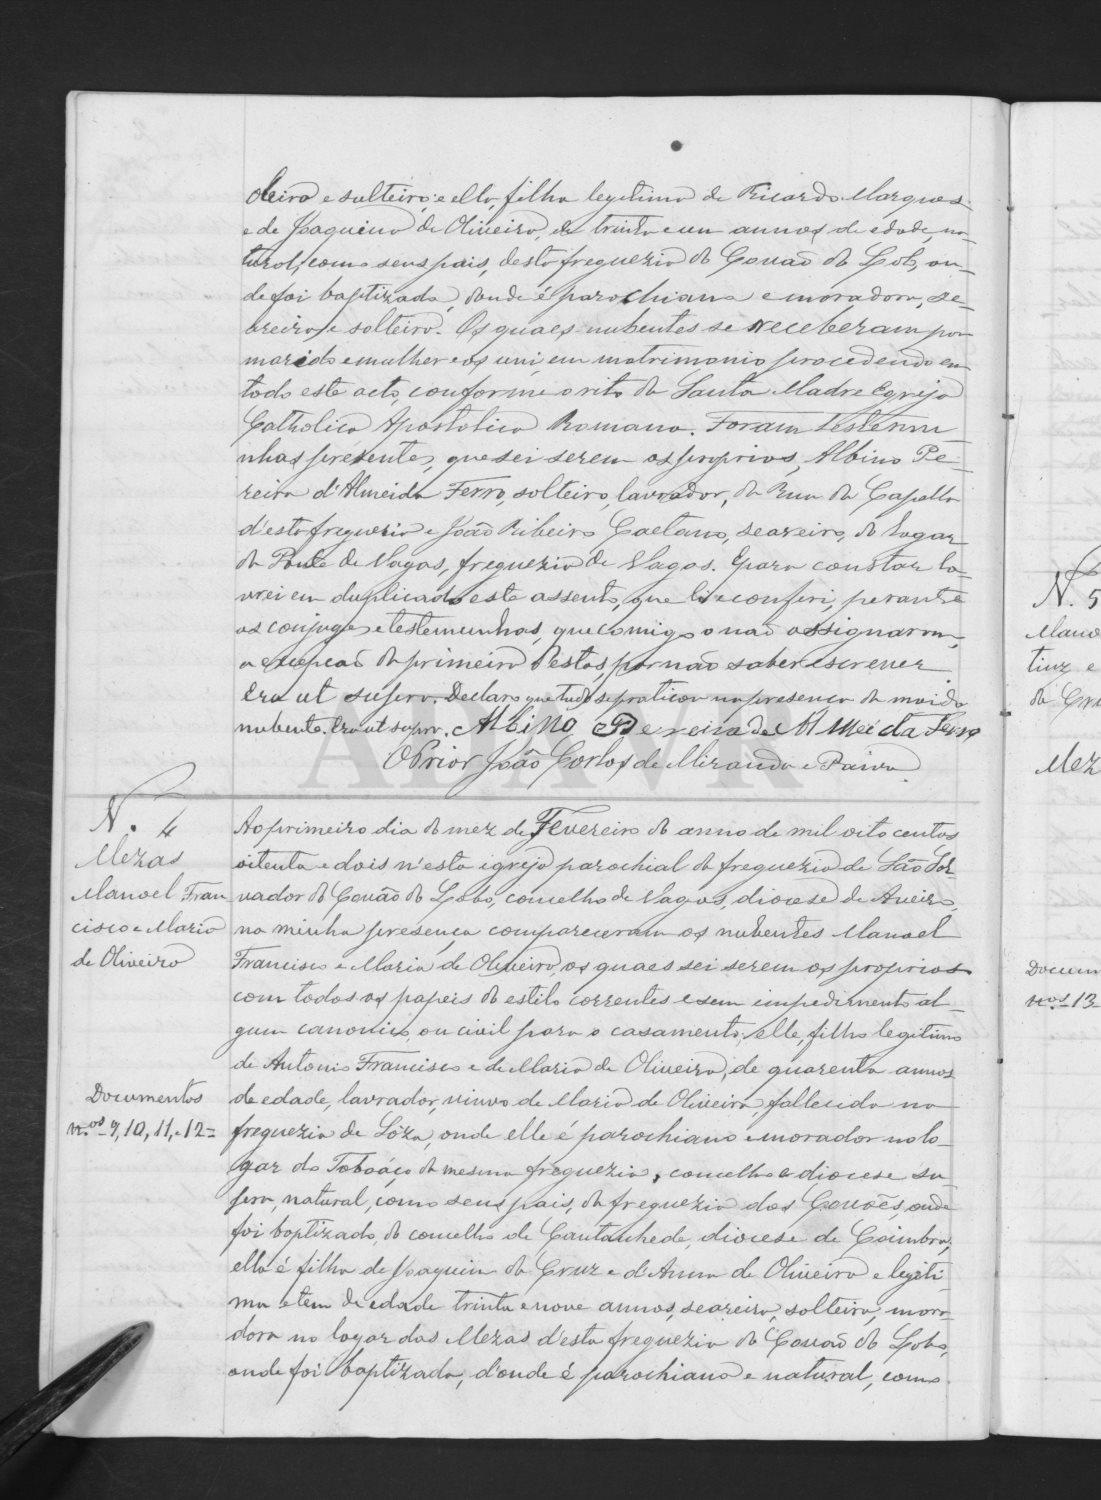 deiro e solteiro; e ella, filha legitima de Ricardo Marques
e de Joaquina de Oliveira, de trinta e um annos de edade, na-
tural, como seus pais, desta freguezia do Covão do Lobo, on-
de foi baptizada, donde é parochiana e moradora, se-
areira e solteira. Os quaes nubentes se receberam por
marido e mulher e os uni em matrimonio procedendo em
todo este acto, conforme o rito da Santa Madre Egreja
Catholica Apostolica Romana. Foram testemu
nhas presentes, que sei serem os proprios, Albino Pe-
reira d'Almeida Ferro, solteiro, lavrador, da Rua da Capella
d'esta freguezia e João Ribeiro Caetano, seareiro, do lugar
da Ponte de Vagos, freguezia de Vagos. E para constar la-
vrei em duplicado este assento, que li e conferi, perante
os conjuges e testemunhas, que comigo o não assignaram,
a excepcão do primeiro d'estas, por não saber escrever
Era ut supra. Declaro que tudo se praticou na presença da mai da
nubente. Era ut supra. Albino Pereira de Almeida Ferro
O Prior João Carlos de Miranda e Paiva
N. 4
Mezas
Manoel Fran
cisco e Maria
de Oliveira
Documentos
nos 9, 10, 11, e 12=
Ao primeiro dia do mez de Fevereiro do anno de mil oito centos
oitenta e dois n'esta igreja parochial da freguezia de São Sal
vador do Covão do Lobo, concelho de Vagos, diocese de Aveiro,
na minha presença compareceram os nubentes Manoel
Francisco e Maria de Oliveira, os quaes sei serem os proprios
com todos os papeis do estilo correntes e sem impedimento al-
gum canonico, ou civil para o casamento; elle, filho legitimo
de Antonio Francisco e de Maria de Oliveira, de quarenta annos
de edade, lavrador, viuvo de Maria de Oliveira, fallecida na
freguezia de Sôza, onde elle é parochiano e morador no lo-
gar do Taboaço da mesma freguezia, concelho e diocese su
pra, natural, como seus pais, da freguezia dos Covões, onde
foi baptizado, do concelho de Cantanhede, diocese de Coimbra;
ella é filha de Joaquim da Cruz e d'Anna de Oliveira e legiti
ma e tem de edade trinta e nove annos, seareira, solteira, mora
dora no logar das Mezas d'esta freguezia do Covão do Lobo,
onde foi baptizada, d'onde é parochiana e natural, como
N. 5
Mano
tinz e
da Cru
Mez
Docum
nos 13